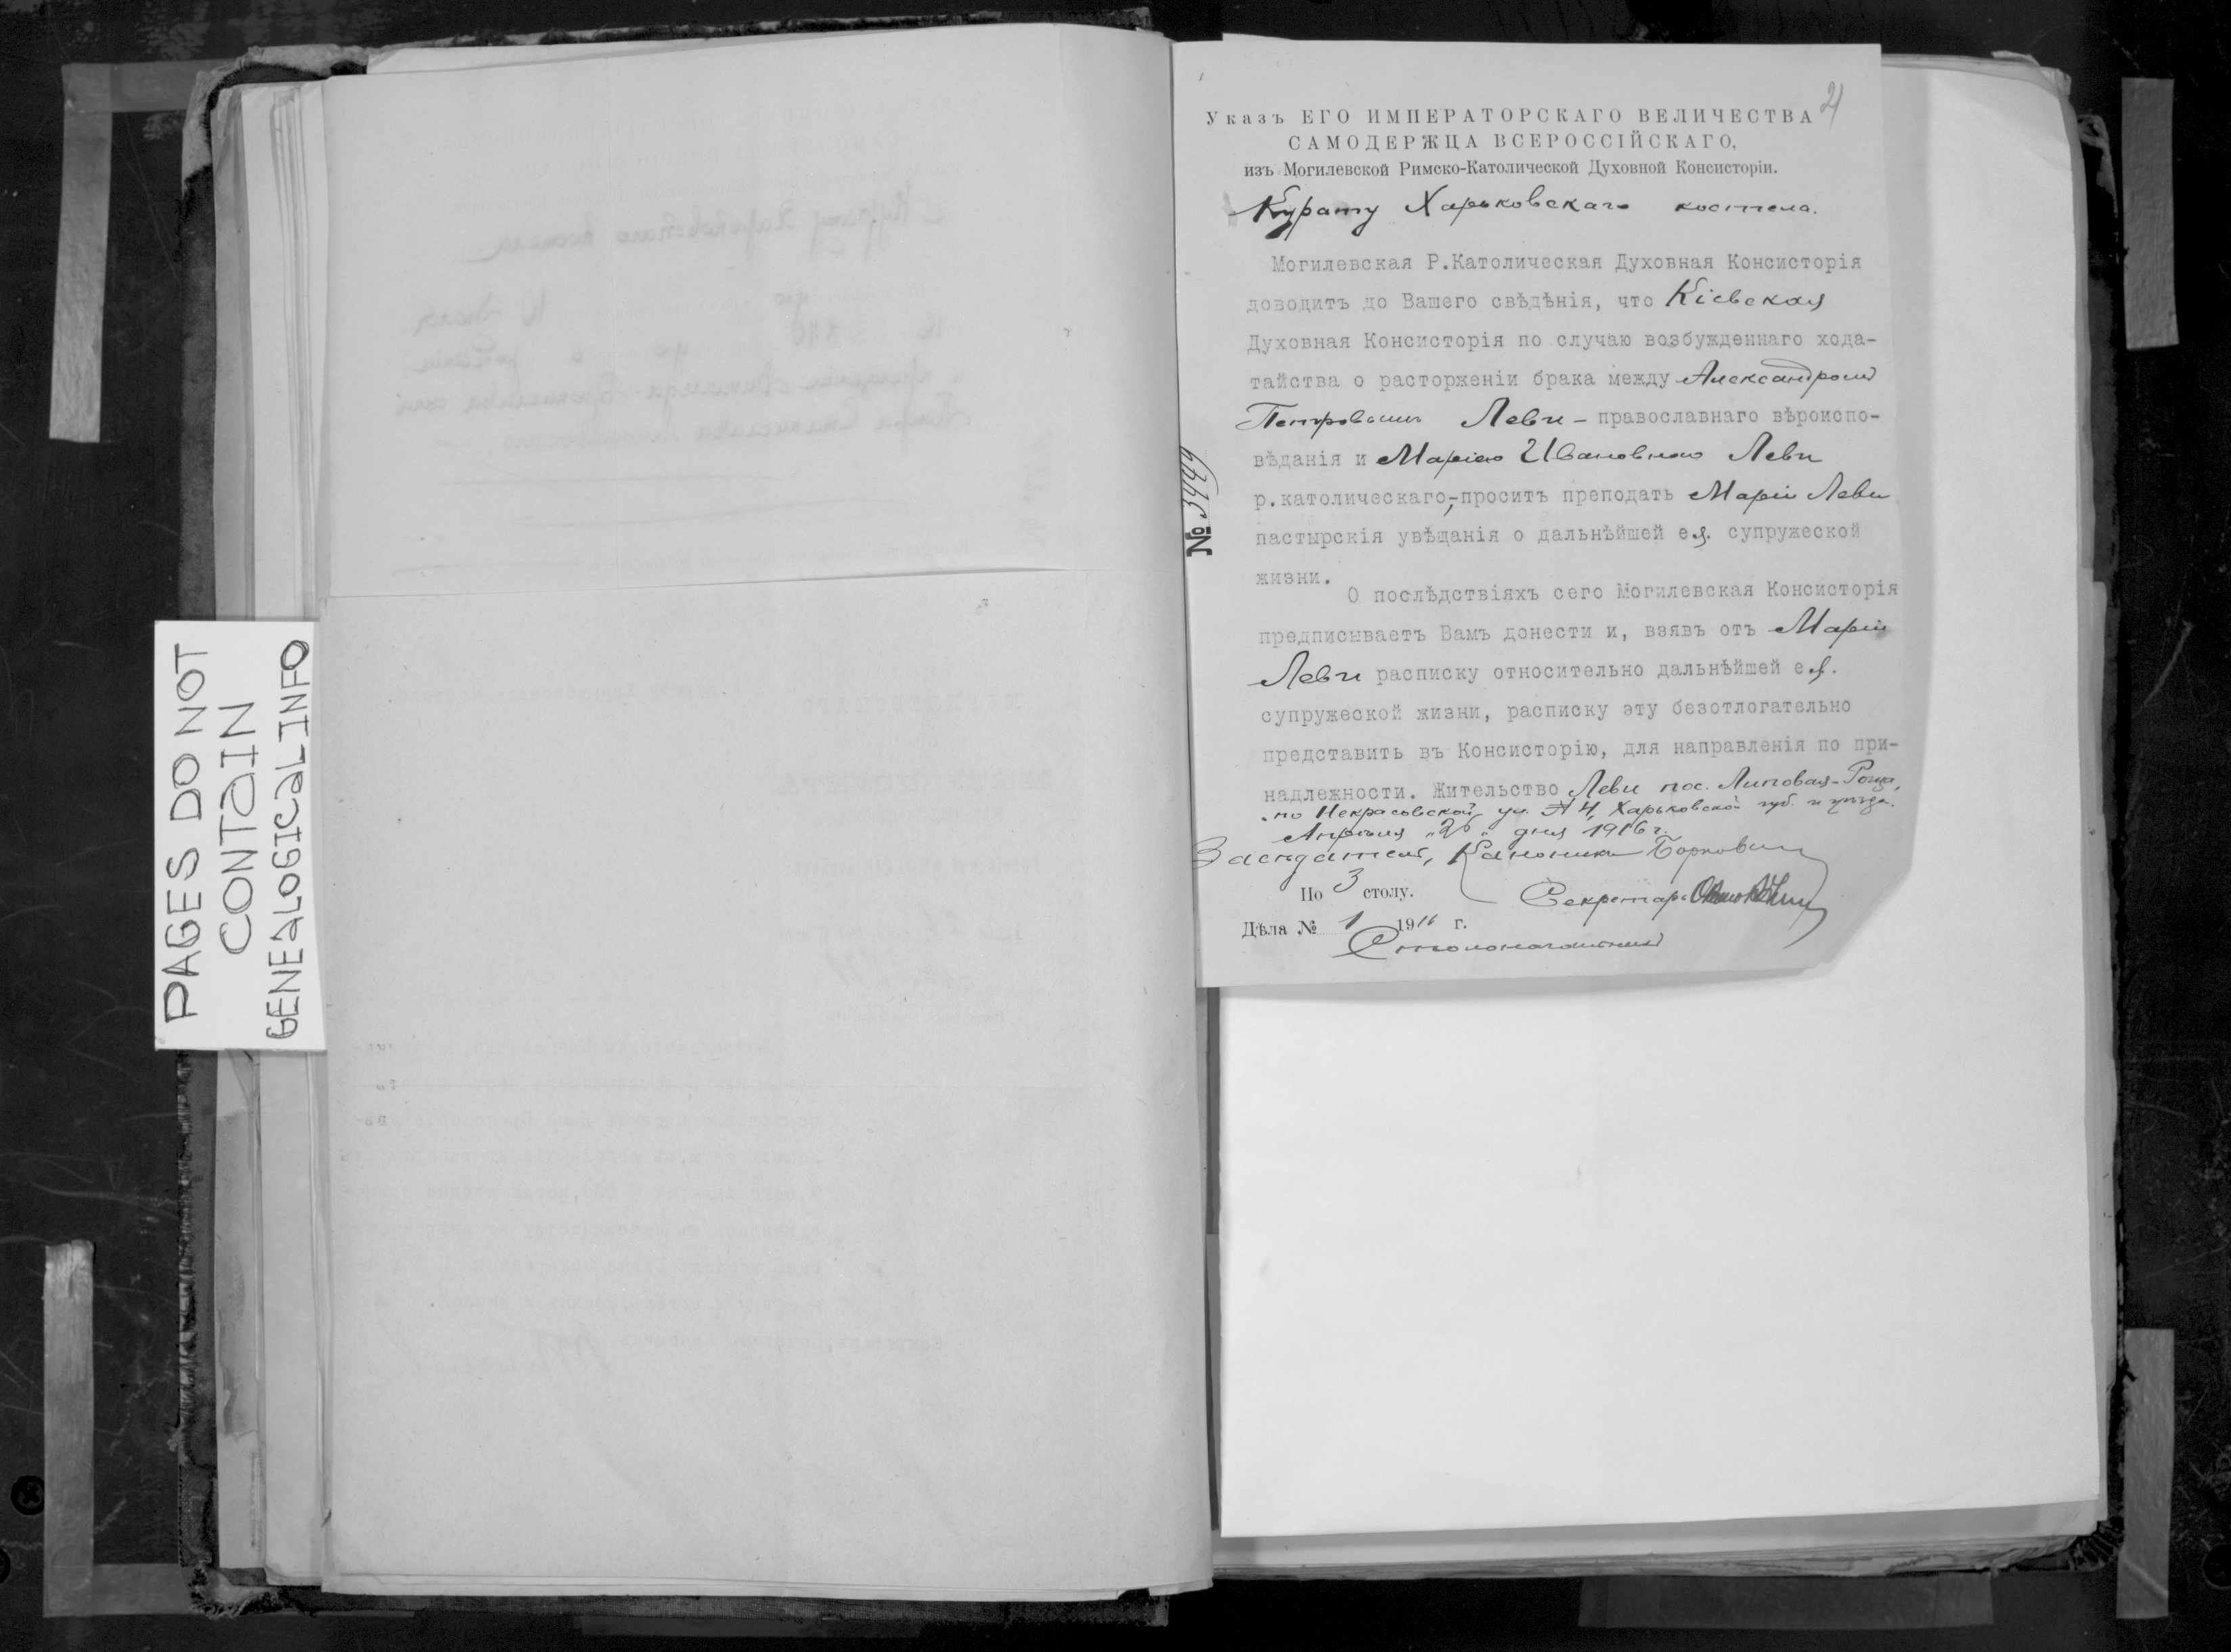 PAGES DO NOT
CONTAIN
GENEALOGICAL INFO
21
Указъ ЕГО ИМПЕРАТОРСКАГО ВЕЛИЧЕСТВА
САМОДЕРЖЦА ВСЕРОССІЙСКАГО,
изъ Могилевской Римско-Католической Духовной Консисторіи.
Курату Харьковскаго костела.
Могилевская Р.Католическая Духовная Консисторія
доводитъ до Вашего свѣдѣнія, что Кіевская
Духовная Консисторія по случаю возбужденнаго хода-
тайства о расторженіи брака между Александромъ
Петровымъ Леви - православнаго вѣроиспо-
вѣданія и Маріею Ивановною Леви
р.католическаго,-проситъ преподать Маріи Леви
пастырскія увѣщанія о дальнѣйшей ея. супружеской
жизни.
О послѣдствіяхъ сего Могилевская Консисторія
предписываетъ Вамъ донести и, взявъ отъ Маріи
Леви расписку относительно дальнѣйшей ея.
супружеской жизни, расписку эту безотлогательно
представить въ Консисторію, для направленія по при-
надлежности. Жительство Леви пос. Липовая-Роща,
по Некрасовской ул. № 4, Харьковской губ. и уѣзда.
Апрѣля "26" дня 1916 г.
Засѣдатель, Каноникъ
По 3 столу.
Секретарь
Дѣла № 1 1916 г.
Столоначальникъ
№ 3449